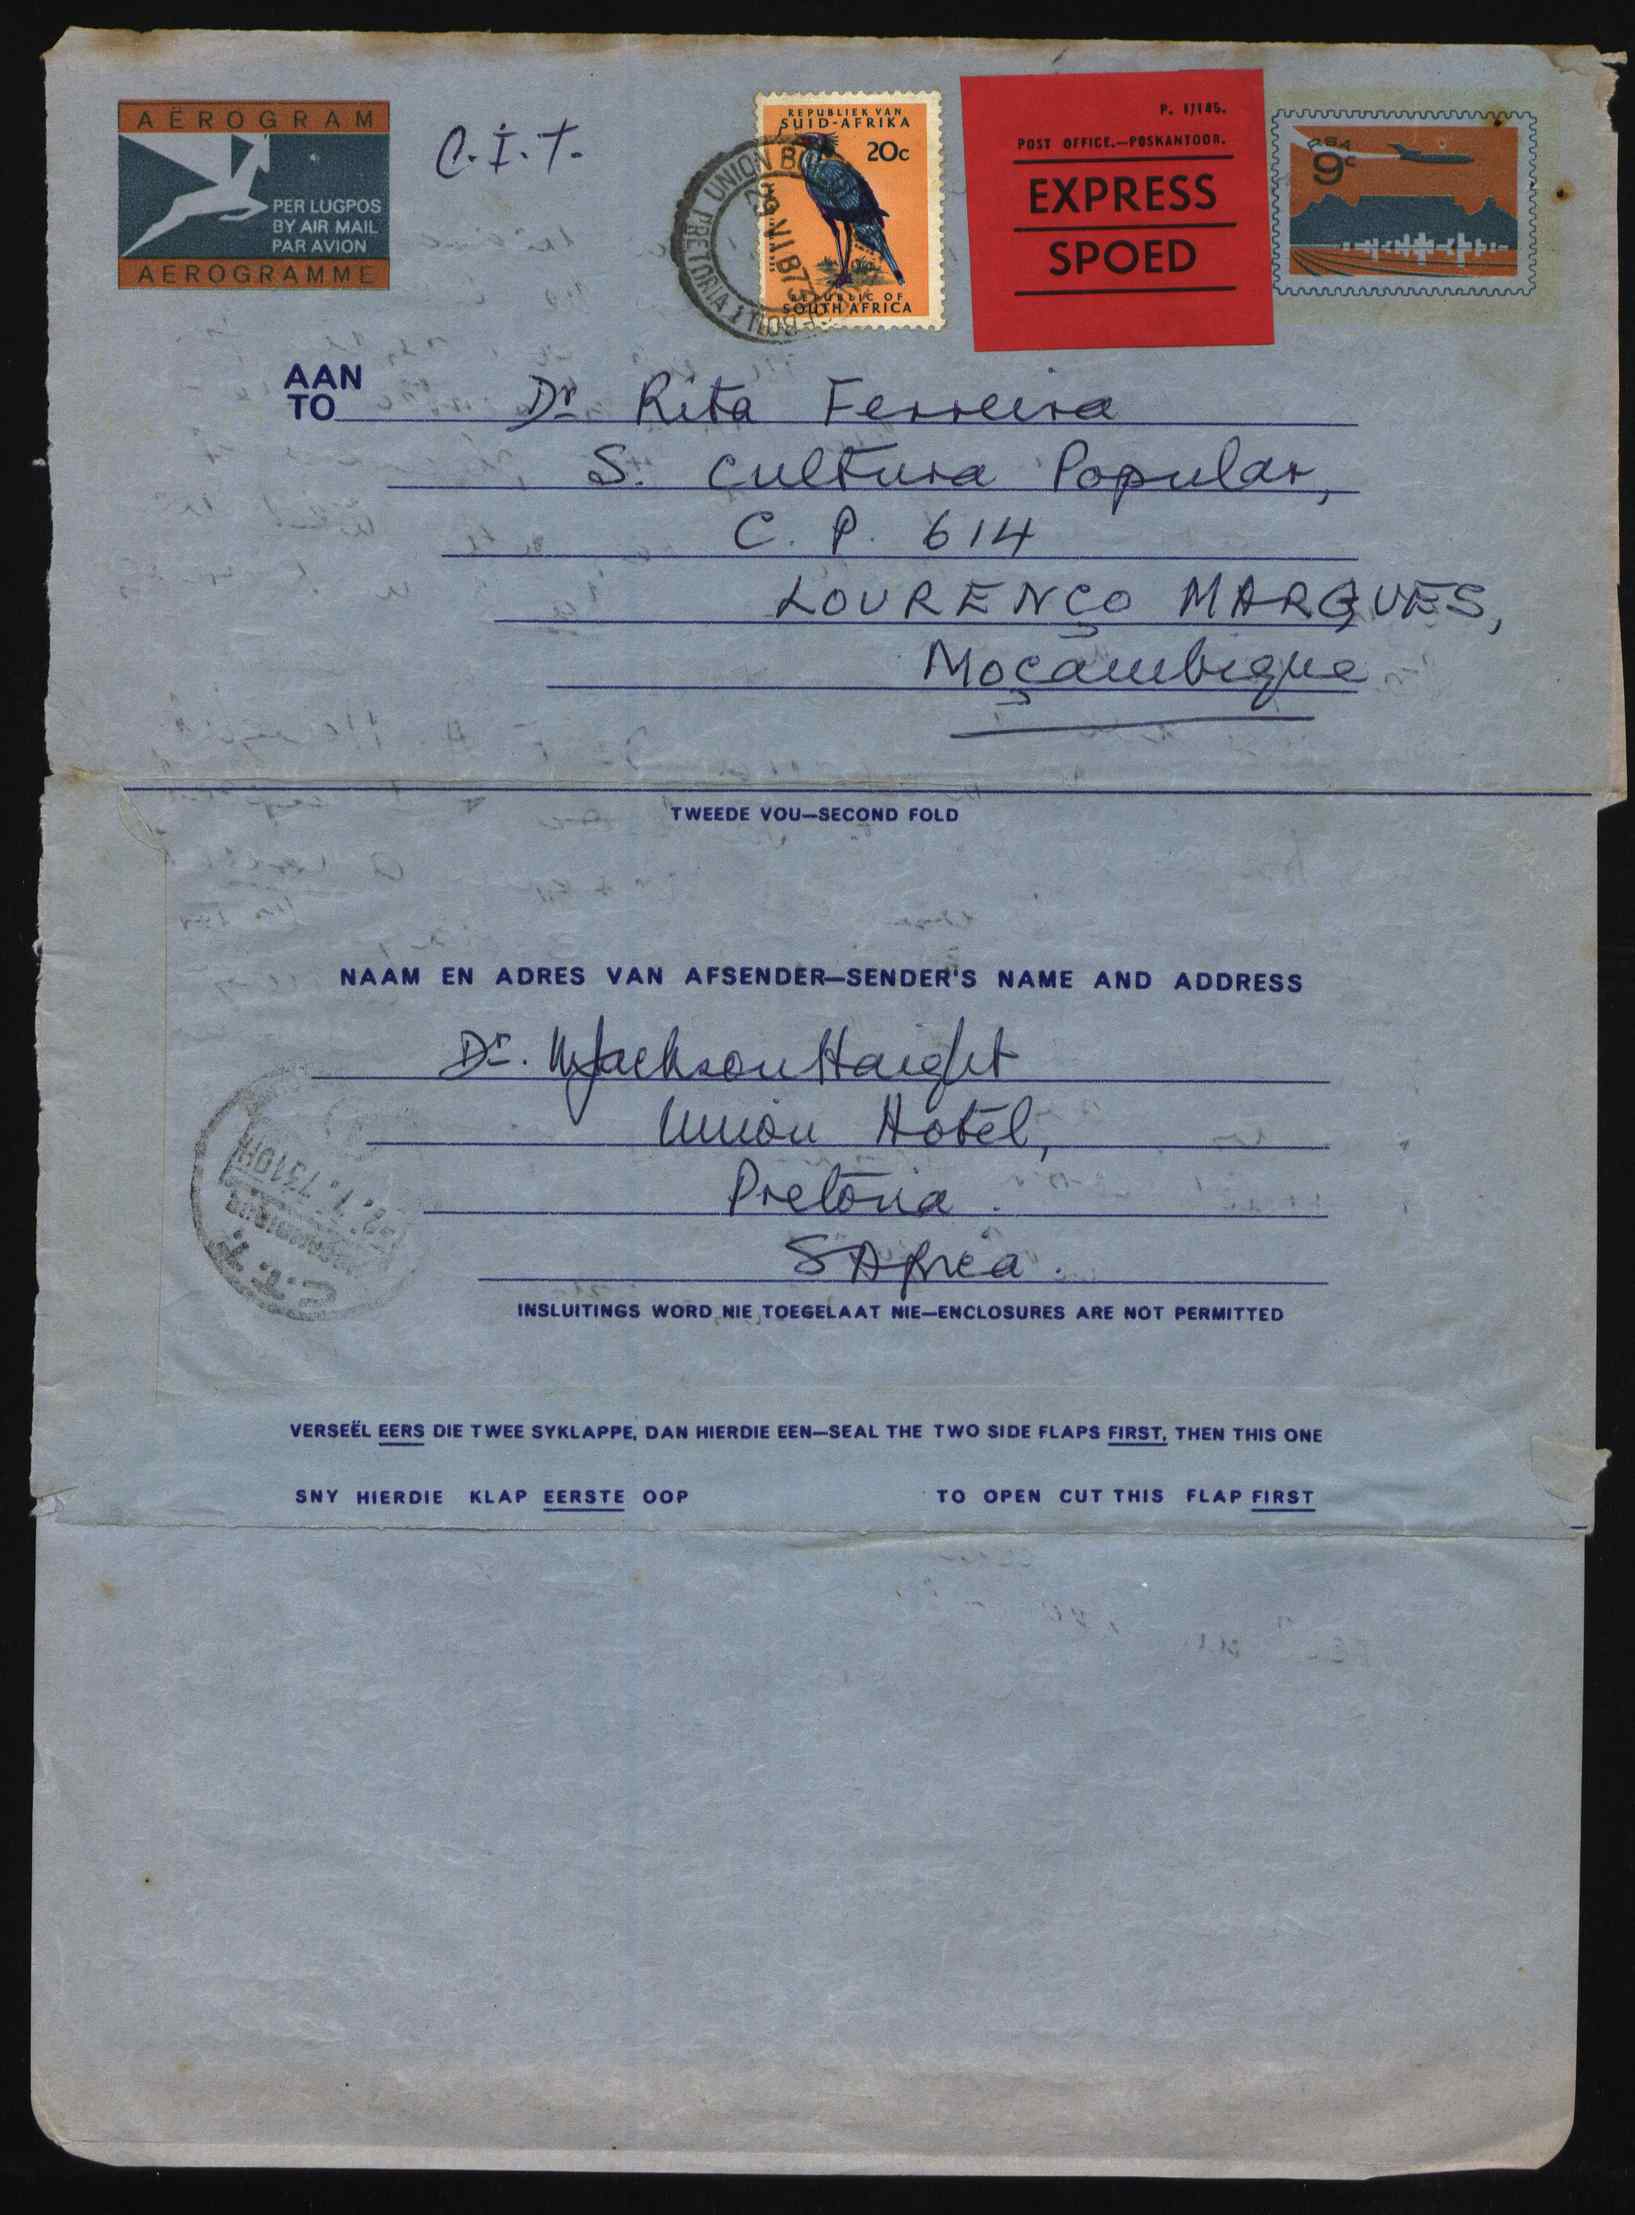 AËROGRAM
PER LUGPOS
BY AIR MAIL
PAR AVION
AEROGRAMME
C.I.T.
REPUBLIEK VAN
SUID-AFRIKA
20c
REPUBLIC OF
SOUTH AFRICA
UNION
PRETORIA 1
P. 1/145.
POST OFFICE.—POSKANTOOR.
EXPRESS
SPOED
RSA
9c
AAN
TO
Dr Rita Ferreira
S. Cultura Popular,
C. P. 614
LOURENÇO MARQUES,
Moçambique
TWEEDE VOU—SECOND FOLD
NAAM EN ADRES VAN AFSENDER—SENDER'S NAME AND ADDRESS
Dr. MJackson Haight
Union Hotel,
Pretoria.
S Africa.
C.T.T.
INSLUITINGS WORD NIE TOEGELAAT NIE—ENCLOSURES ARE NOT PERMITTED
VERSEËL EERS DIE TWEE SYKLAPPE, DAN HIERDIE EEN—SEAL THE TWO SIDE FLAPS FIRST, THEN THIS ONE
SNY HIERDIE KLAP EERSTE OOP TO OPEN CUT THIS FLAP FIRST